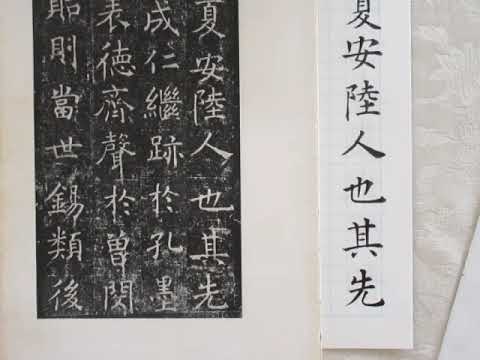 夏安陸人也其先
夏安陸人也其先
成仁繼跡於孔墨
表德齊聲於曾閔
貽則當世錫類後